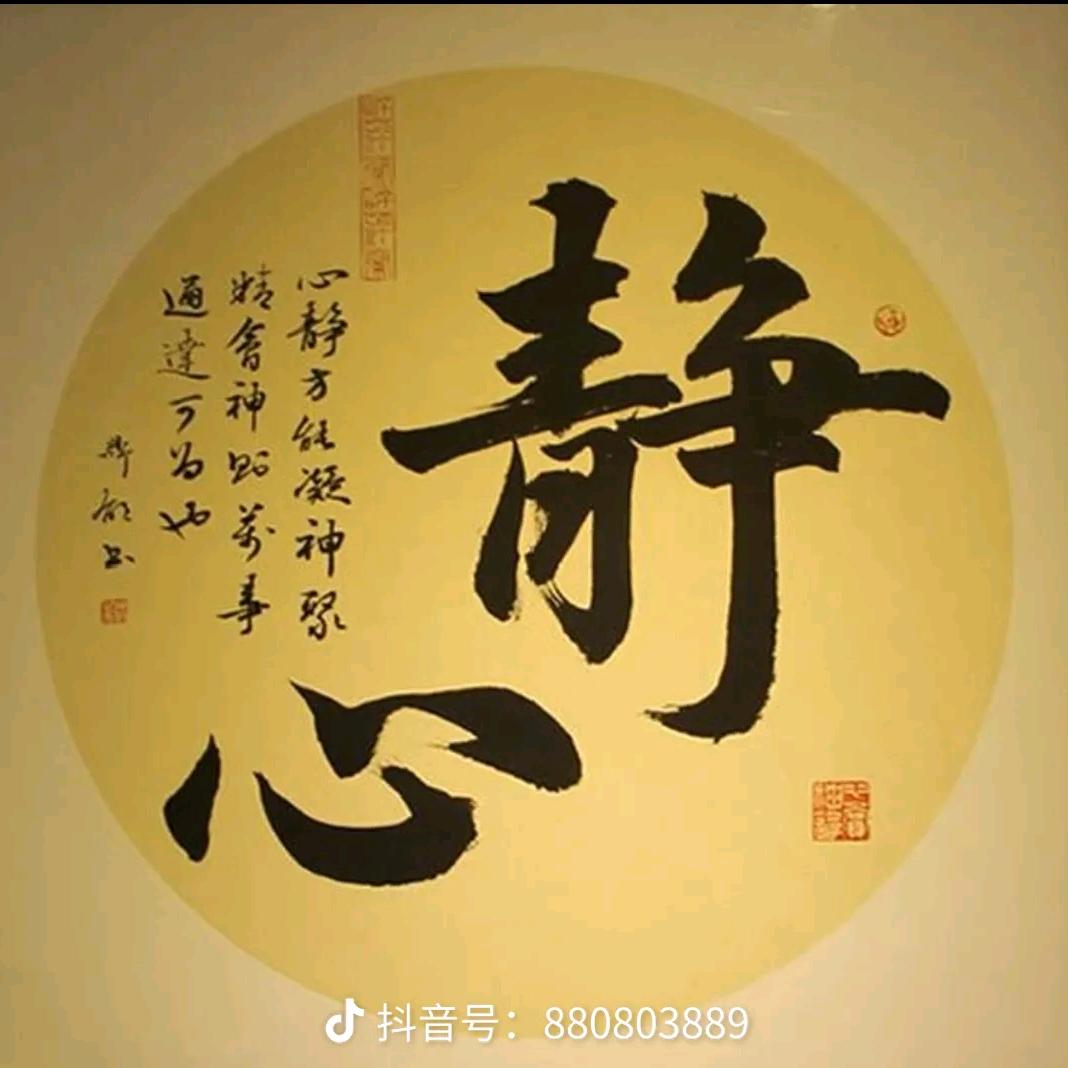 静
心
心静方能凝神聚
精會神则萬事
通達可为也
书
抖音号：880803889